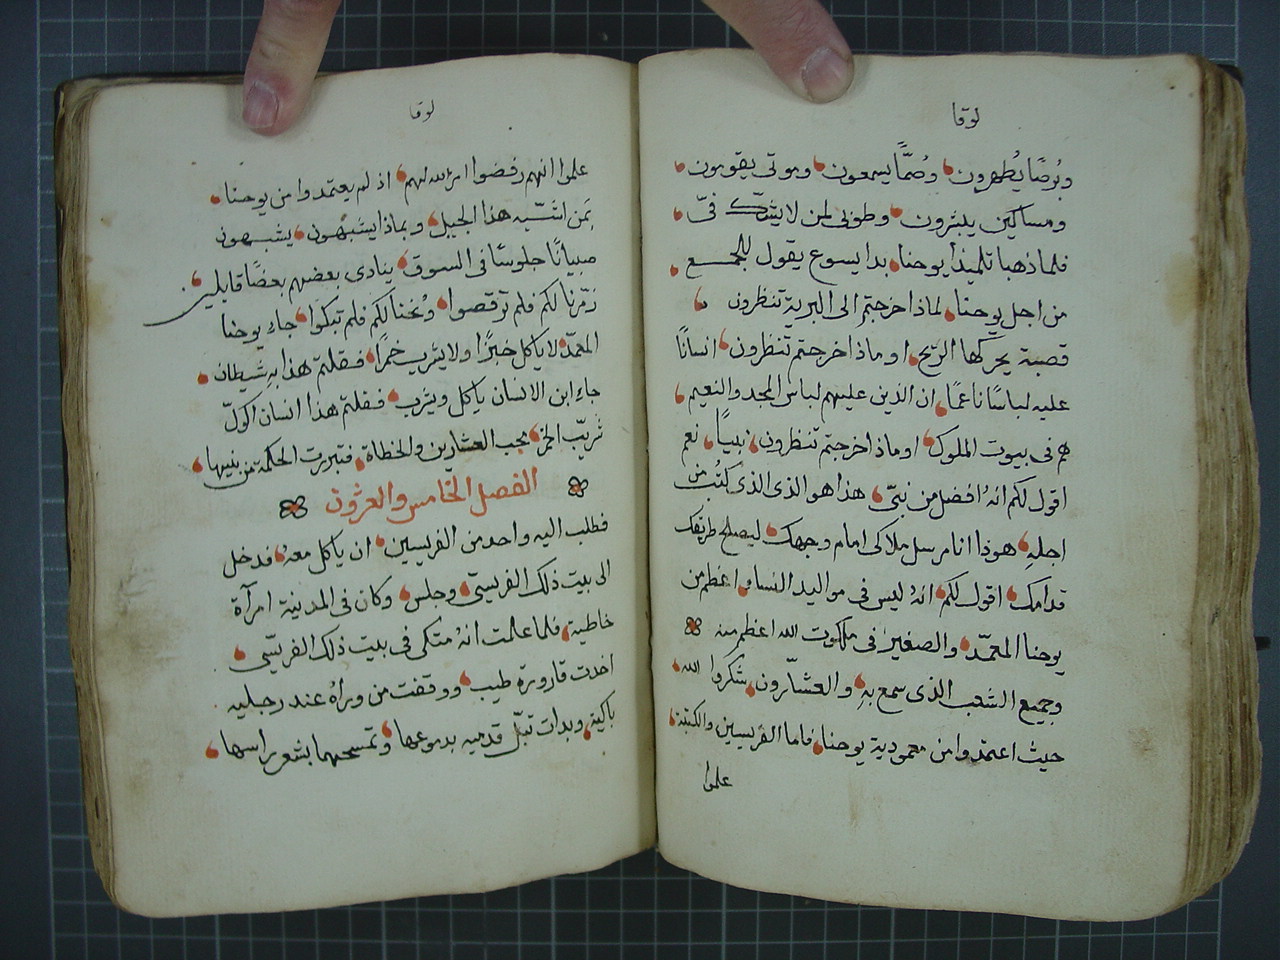 لوقا
وبُرصًا يُطهرون وصُمًّا يسمعون وموتى يقومون
ومساكين يبشرون وطوبى لمن لا يشك فىّ
فلما ذهبا تلميذا يوحنا بدا يسوع يقول للجمع
من اجل يوحنا لماذا خرجتم الى البرية تنظرون
قصبة يحركها الريح او ماذا خرجتم تنظرون انسانًا
عليه لباسًا ناعمًا ان الذين عليهم لباس المجد والنعيم
هم فى بيوت الملوك او ماذا خرجتم تنظرون نبيًا نعم
اقول لكم انهُ افضل من نبىّ هذا هو الذى الذى كُتب من
اجلهِ هوذا انا مرسل ملاكى امام وجهك ليصلح طريقك
قدامك اقول لكم انهُ ليس فى مواليد النساء اعظم من
يوحنا المعمّد والصغير فى ملكوت الله اعظم منه
وجميع الشعب الذى سمع بهِ والعشّارون شكروا الله
حيث اعتمدوا من معمودية يوحنا فاما الفريسيين والكتبة
علموا
لوقا
علموا انهم رفضوا امر الله لهم اذ لم يعتمدوا من يوحنا
بَمن اشبّه هذا الجيل وبماذا يشبهون يشبهون
صبيانًا جلوسًا فى السوق ينادى بعضهم بعضًا قايلين
زمّرنا لكم فلم ترقصوا ونُحنا لكم فلم تبكوا جاء يوحنا
المعمّد لا ياكل خبزًا ولا يشرب خمرًا فقلتم هذا بهِ شيطان
جاء ابن الانسان ياكل ويشرب فقلتم هذا انسان اكولّ
شريّب الخمر يحب العشارين والخطاة فتبررت الحكمة من بنيها
الفصل الخامس والعشرون
فطلب اليه واحد من الفريسين ان ياكل معهُ فدخل
الى بيت ذلك الفريسىّ وجلس وكان فى المدينة امرأة
خاطية فلما علمت انهُ متكى فى بيت ذلك الفريسّى
اخدت قارورة طيب ووقفت من وراهُ عند رجليه
باكية وبدات تبلّ قدميه بدموعها وتمسحهما بشعر راسها